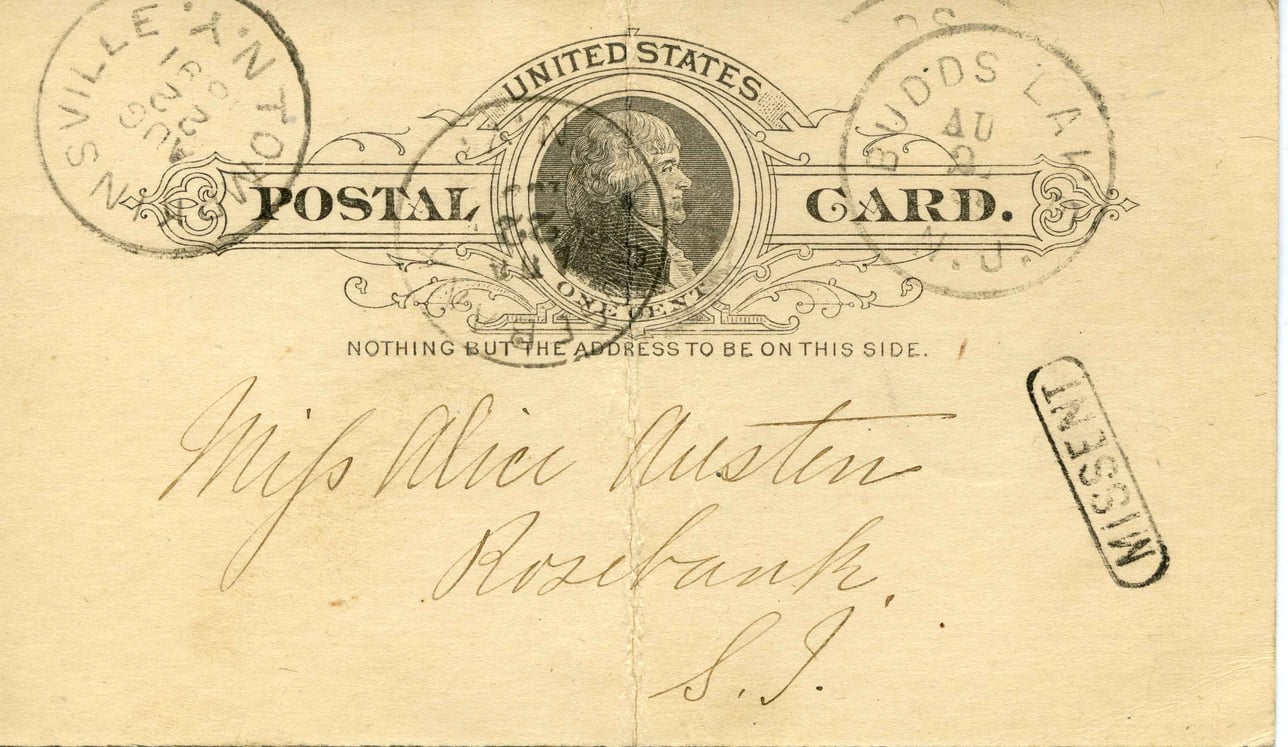 UNITED STATES
POSTAL CARD.
ONE CENT
NOTHING BUT THE ADDRESS TO BE ON THIS SIDE.
BUDDS
AU
N.J.
NSVILLE
N.Y.
MISSENT
Miss Alice Austen
Rosebank.
S. I.